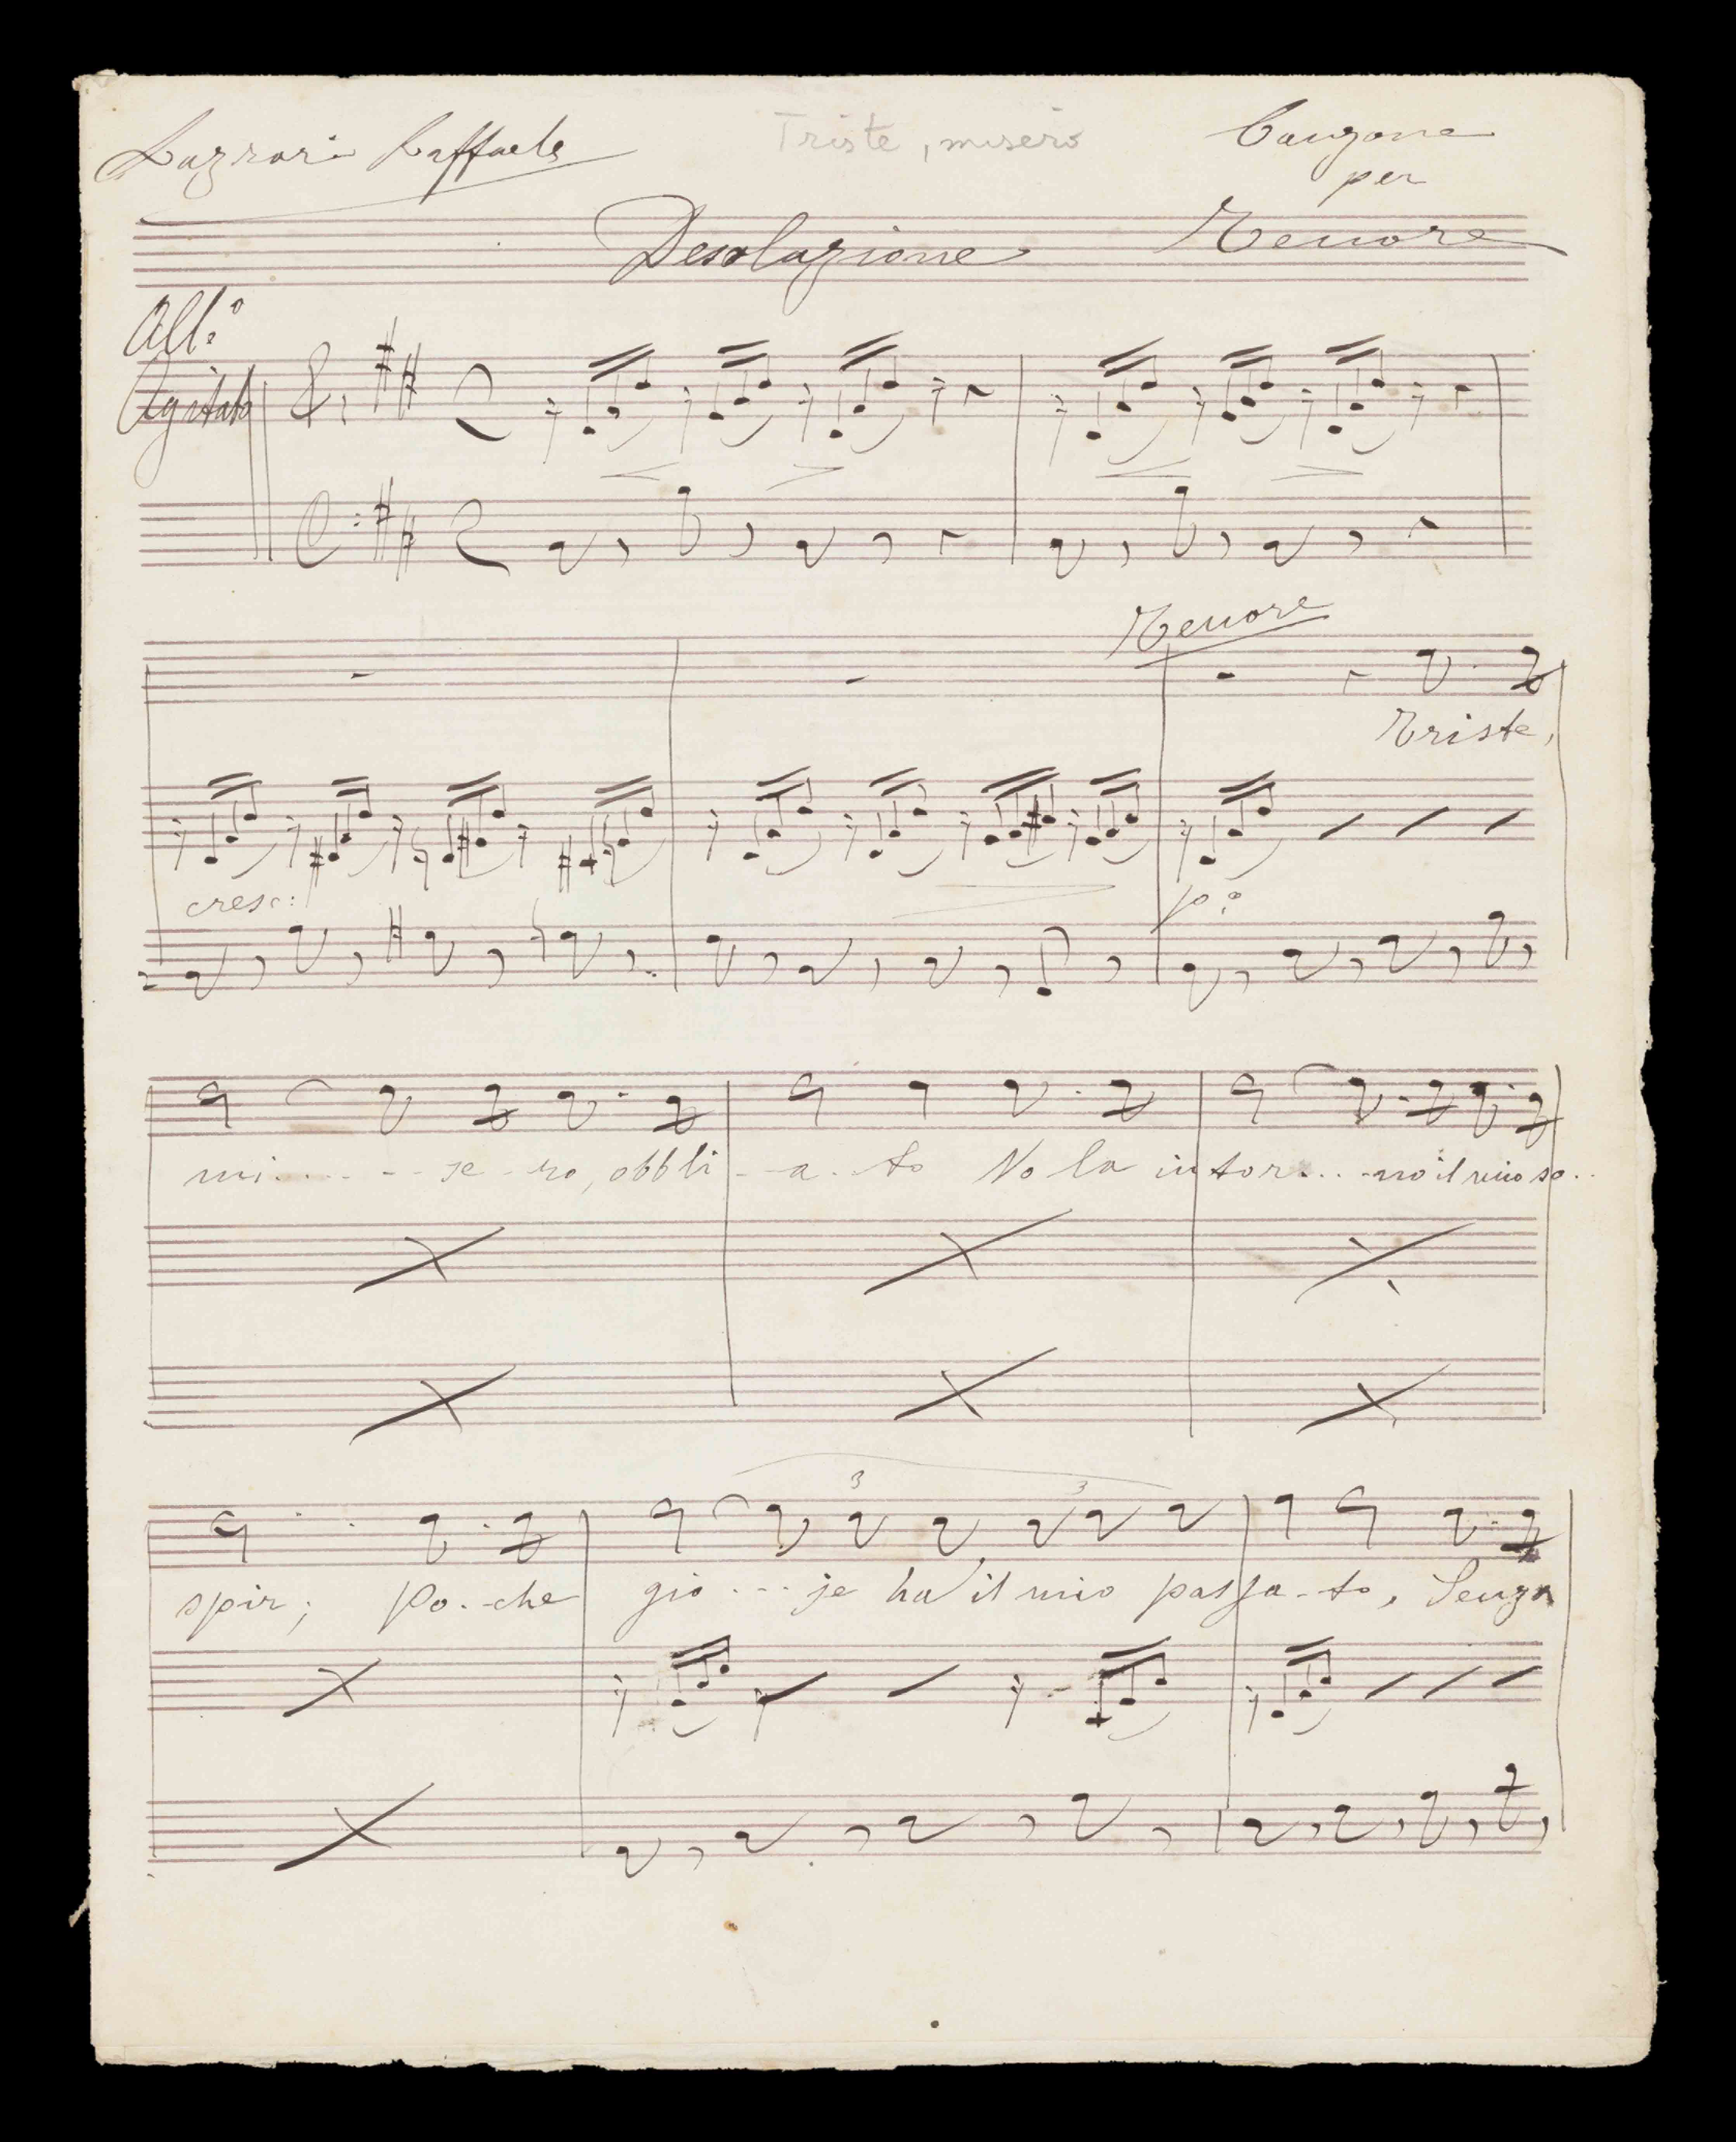 Lazzari Raffaele
Triste, misero
Canzone
per
Tenore
Desolazione
All.º
Agitato
Tenore
Triste,
cresc:
po:
mi.... -- se - ro, obbli - - a - to Vo la intor... - no il mio so..
3 3
spir; Po - che gio - - - je ha il mio passa - to, Senza